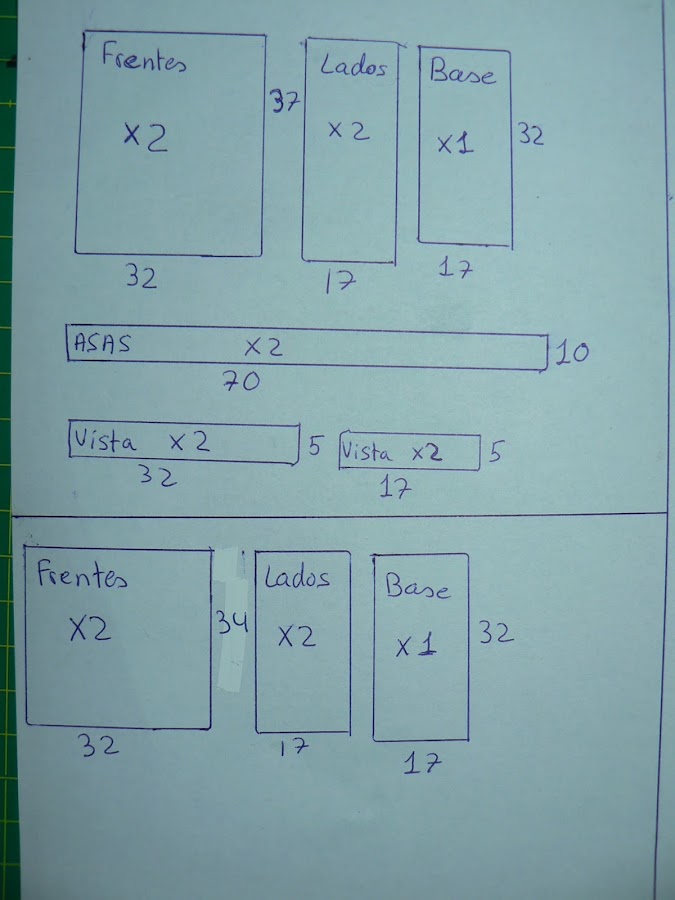 Frentes
x2
37
32
Lados
x2
17
Base
x1
32
17
ASAS x2
10
70
Vista x2
5
32
Vista x2
5
17
Frentes
x2
34
32
Lados
x2
17
Base
x1
32
17